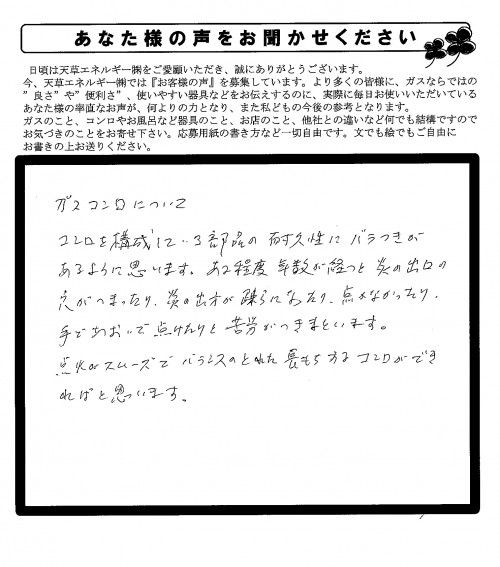 あなた様の声をお聞かせください
日頃は天草エネルギー㈱をご愛願いただき、誠にありがとうございます。
今、天草エネルギー㈱では『お客様の声』を募集しています。より多くの皆様に、ガスならではの
”良さ”や”便利さ”、使いやすい器具などをお伝えするのに、実際に毎日お使いいただいている
あなた様の率直なお声が、何よりの力となり、また私どもの今後の参考となります。
ガスのこと、コンロやお風呂など器具のこと、お店のこと、他社との違いなど何でも結構ですので
お気づきのことをお寄せ下さい。応募用紙の書き方など一切自由です。文でも絵でもご自由に
お書きの上お送りください。
ガスコンロについて
コンロを構成している部品の耐久性にバラつきが
あるように思います。ある程度年数が経つと炎の出口の
穴がつまったり、炎の出方が疎らになったり、点かなかったり、
手であおいで点けたりと苦労がつきまといます。
点火がスムーズでバランスのとれた長もちするコンロができ
ればと思います。